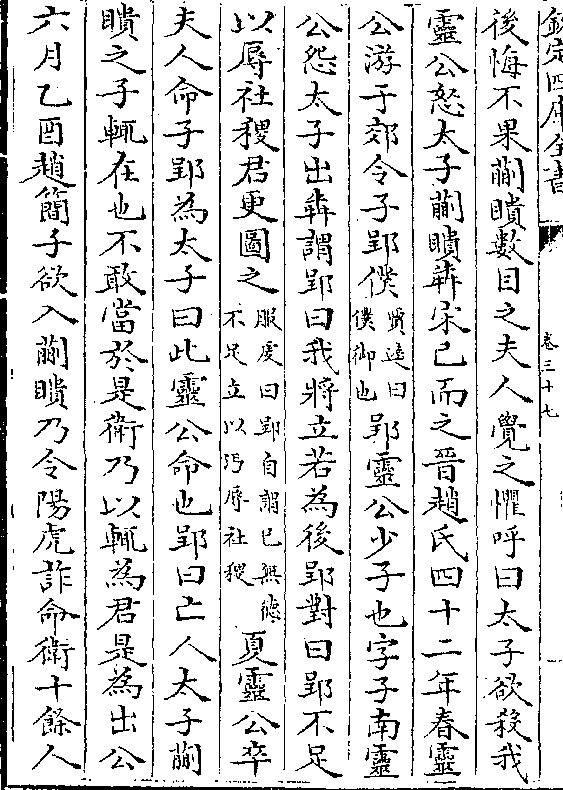 欽定四庫全書 卷三十七
後悔不果蒯聵數目之夫人覺之懼呼曰太子欲殺我
靈公怒太子蒯聵犇宋已而之晉趙氏四十二年春靈
公游于郊令子郢僕賈逵曰僕御也郢靈公少子也字子南靈
公怨太子出犇謂郢曰我將立若為後郢對曰郢不足
以辱社稷君更圖之服虔曰郢自謂已無德不足立以汚辱社稷夏靈公卒
夫人命子郢為太子曰此靈公命也郢曰亡人太子蒯
聵之子輒在也不敢當於是衛乃以輒為君是為出公
六月乙酉趙簡子欲入蒯聵乃令陽虎詐命衛十餘人